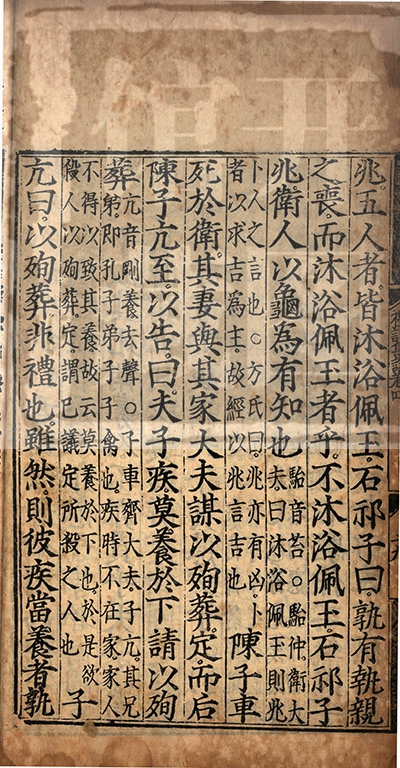 兆五人者皆沐浴佩玉石祁子曰孰有執親
之喪而沐浴佩玉者乎不沐浴佩玉石祁子
兆衛人以龜為有知也
駘音苔○駘仲衛大
夫曰沐浴佩玉則兆
卜人之言也○方氏曰兆亦有凶卜
者以求吉為主故經以兆言吉也
陳子車
死於衛其妻與其家大夫謀以殉葬定而后
陳子亢至以告曰夫子疾莫養於下請以殉
葬
亢音剛養去聲○子車齊大夫子亢其兄
弟即孔子弟子子禽也疾時不在家家人
不得以致其養故云莫養於下也於是欲
殺人以殉葬定謂已議定所殺之人也
子
亢曰以殉葬非禮也雖然則彼疾當養者孰